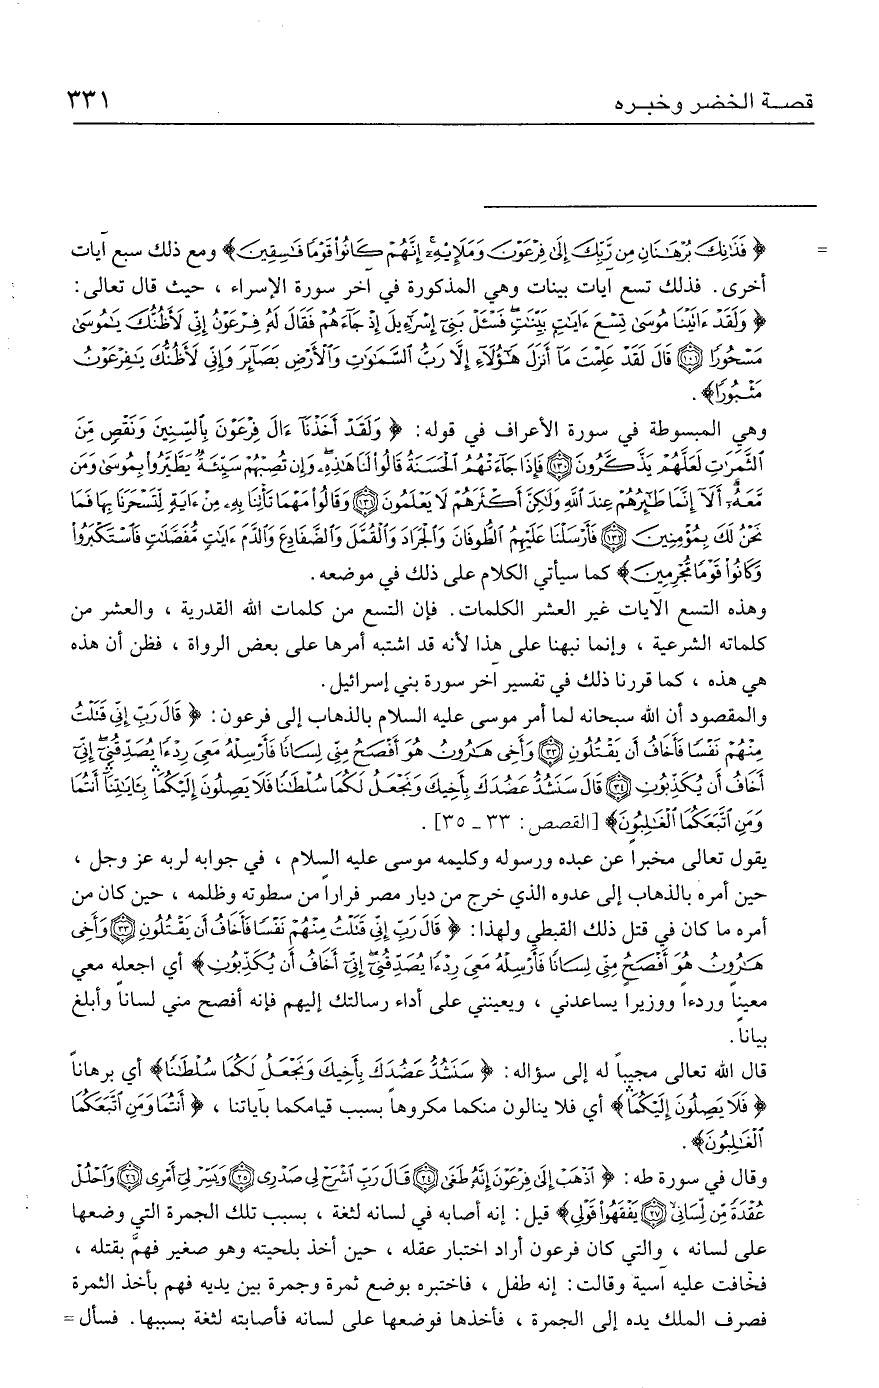 قصة الخضر وخبره ٣٣١
= ﴿ فَذَانِكَ بُرْهَانَانِ مِن رَّبِّكَ إِلَىٰ فِرْعَوْنَ وَمَلَإِيْهِ إِنَّهُمْ كَانُوا۟ قَوْمًا فَاسِقِينَ﴾ ومع ذلك سبع آيات
أخرى. فذلك تسع آيات بينات وهي المذكورة في آخر سورة الإسراء ، حيث قال تعالى:
﴿ وَلَقَدْ ءَاتَيْنَا مُوسَىٰ تِسْعَ ءَايَاتٍ بَيِّنَاتٍ فَسْـَٔلْ بَنِىٓ إِسْرَٰٓءِيلَ إِذْ جَآءَهُمْ فَقَالَ لَهُۥ فِرْعَوْنُ إِنِّى لَأَظُنُّكَ يَٰمُوسَىٰ
مَسْحُورًا ۝ قَالَ لَقَدْ عَلِمْتَ مَآ أَنزَلَ هَٰٓؤُلَآءِ إِلَّا رَبُّ ٱلسَّمَٰوَٰتِ وَٱلْأَرْضِ بَصَآئِرَ وَإِنِّى لَأَظُنُّكَ يَٰفِرْعَوْنُ
مَثْبُورًا﴾.
وهي المبسوطة في سورة الأعراف في قوله: ﴿ وَلَقَدْ أَخَذْنَآ ءَالَ فِرْعَوْنَ بِٱلسِّنِينَ وَنَقْصٍ مِّنَ
ٱلثَّمَرَٰتِ لَعَلَّهُمْ يَذَّكَّرُونَ ۝ فَإِذَا جَآءَتْهُمُ ٱلْحَسَنَةُ قَالُوا۟ لَنَا هَٰذِهِۦ وَإِن تُصِبْهُمْ سَيِّئَةٌ يَطَّيَّرُوا۟ بِمُوسَىٰ وَمَن
مَّعَهُۥٓ أَلَآ إِنَّمَا طَٰٓئِرُهُمْ عِندَ ٱللَّهِ وَلَٰكِنَّ أَكْثَرَهُمْ لَا يَعْلَمُونَ ۝ وَقَالُوا۟ مَهْمَا تَأْتِنَا بِهِۦ مِنْ ءَايَةٍ لِّتَسْحَرَنَا بِهَا فَمَا
نَحْنُ لَكَ بِمُؤْمِنِينَ ۝ فَأَرْسَلْنَا عَلَيْهِمُ ٱلطُّوفَانَ وَٱلْجَرَادَ وَٱلْقُمَّلَ وَٱلضَّفَادِعَ وَٱلدَّمَ ءَايَٰتٍ مُّفَصَّلَٰتٍ فَٱسْتَكْبَرُوا۟
وَكَانُوا۟ قَوْمًا مُّجْرِمِينَ﴾ كما سيأتي الكلام على ذلك في موضعه.
وهذه التسع الآيات غير العشر الكلمات. فإن التسع من كلمات الله القدرية ، والعشر من
كلماته الشرعية ، وإنما نبهنا على هذا لأنه قد اشتبه أمرها على بعض الرواة ، فظن أن هذه
هي هذه ، كما قررنا ذلك في تفسير آخر سورة بني إسرائيل.
والمقصود أن الله سبحانه لما أمر موسى عليه السلام بالذهاب إلى فرعون: ﴿ قَالَ رَبِّ إِنِّى قَتَلْتُ
مِنْهُمْ نَفْسًا فَأَخَافُ أَن يَقْتُلُونِ ۝٣٣ وَأَخِى هَٰرُونُ هُوَ أَفْصَحُ مِنِّى لِسَانًا فَأَرْسِلْهُ مَعِىَ رِدْءًا يُصَدِّقُنِىٓ إِنِّىٓ
أَخَافُ أَن يُكَذِّبُونِ ۝٣٤ قَالَ سَنَشُدُّ عَضُدَكَ بِأَخِيكَ وَنَجْعَلُ لَكُمَا سُلْطَٰنًا فَلَا يَصِلُونَ إِلَيْكُمَا بِـَٔايَٰتِنَآ أَنتُمَا
وَمَنِ ٱتَّبَعَكُمَا ٱلْغَٰلِبُونَ﴾ [القصص: ٣٣ ـ ٣٥] .
يقول تعالى مخبراً عن عبده ورسوله وكليمه موسى عليه السلام ، في جوابه لربه عز وجل ،
حين أمره بالذهاب إلى عدوه الذي خرج من ديار مصر فراراً من سطوته وظلمه ، حين كان من
أمره ما كان في قتل ذلك القبطي ولهذا: ﴿ قَالَ رَبِّ إِنِّى قَتَلْتُ مِنْهُمْ نَفْسًا فَأَخَافُ أَن يَقْتُلُونِ ۝٣٣ وَأَخِى
هَٰرُونُ هُوَ أَفْصَحُ مِنِّى لِسَانًا فَأَرْسِلْهُ مَعِىَ رِدْءًا يُصَدِّقُنِىٓ إِنِّىٓ أَخَافُ أَن يُكَذِّبُونِ﴾ أي اجعله معي
معيناً وردءاً ووزيراً يساعدني ، ويعينني على أداء رسالتك إليهم فإنه أفصح مني لساناً وأبلغ
بياناً.
قال الله تعالى مجيباً له إلى سؤاله: ﴿ سَنَشُدُّ عَضُدَكَ بِأَخِيكَ وَنَجْعَلُ لَكُمَا سُلْطَٰنًا﴾ أي برهاناً
﴿ فَلَا يَصِلُونَ إِلَيْكُمَا﴾ أي فلا ينالون منكما مكروهاً بسبب قيامكما بآياتنا ، ﴿ أَنتُمَا وَمَنِ ٱتَّبَعَكُمَا
ٱلْغَٰلِبُونَ﴾.
وقال في سورة طه: ﴿ ٱذْهَبْ إِلَىٰ فِرْعَوْنَ إِنَّهُۥ طَغَىٰ ۝٢٤ قَالَ رَبِّ ٱشْرَحْ لِى صَدْرِى ۝٢٥ وَيَسِّرْ لِىٓ أَمْرِى ۝٢٦ وَٱحْلُلْ
عُقْدَةً مِّن لِّسَانِى ۝٢٧ يَفْقَهُوا۟ قَوْلِى﴾ قيل: إنه أصابه في لسانه لثغة ، بسبب تلك الجمرة التي وضعها
على لسانه ، والتي كان فرعون أراد اختبار عقله ، حين أخذ بلحيته وهو صغير فهمَّ بقتله ،
فخافت عليه آسية وقالت: إنه طفل ، فاختبره بوضع ثمرة وجمرة بين يديه فهم بأخذ الثمرة
فصرف الملك يده إلى الجمرة ، فأخذها فوضعها على لسانه فأصابته لثغة بسببها. فسأل =